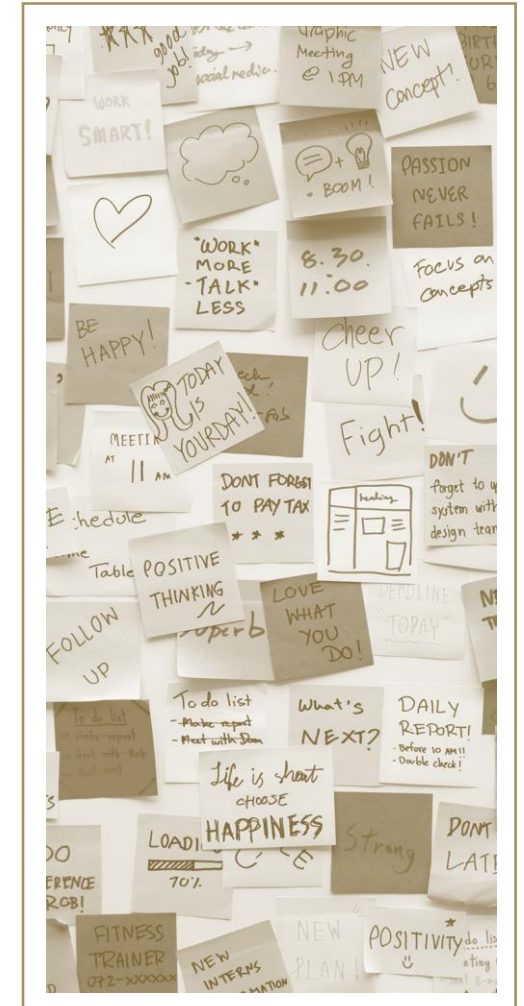 good
job!
social media.
Graphic
Meeting
@ 1 PM
NEW
Concept!
WORK
SMART!
+
BOOM!
PASSION
NEVER
FAILS!
"WORK"
MORE
-TALK-
LESS
8.30.
11:00
Focus on
concepts
BE
HAPPY!
Cheer
UP!
TODAY
IS
YOURDAY!
Fight!
MEETIN
AT 11 AM
DONT FORGET
TO PAY TAX
* * *
heading
DON'T
forget to
system with
design team
hedule
Table
POSITIVE
THINKING
LOVE
WHAT
YOU
DO!
DEADLINE
"TODAY"
FOLLOW
UP
Superb
To do list
To do list
- Make report
- Meet with Dean
What's
NEXT?
DAILY
REPORT!
- Before 10 AM!!
- Double check!
Life is short
CHOOSE
HAPPINESS
LOADI
70%
Strong
DONT
LATE
FITNESS
TRAINER
072-xxxxxx
NEW
INTERNS
NEW
PLAN!
POSITIVITY
do lis